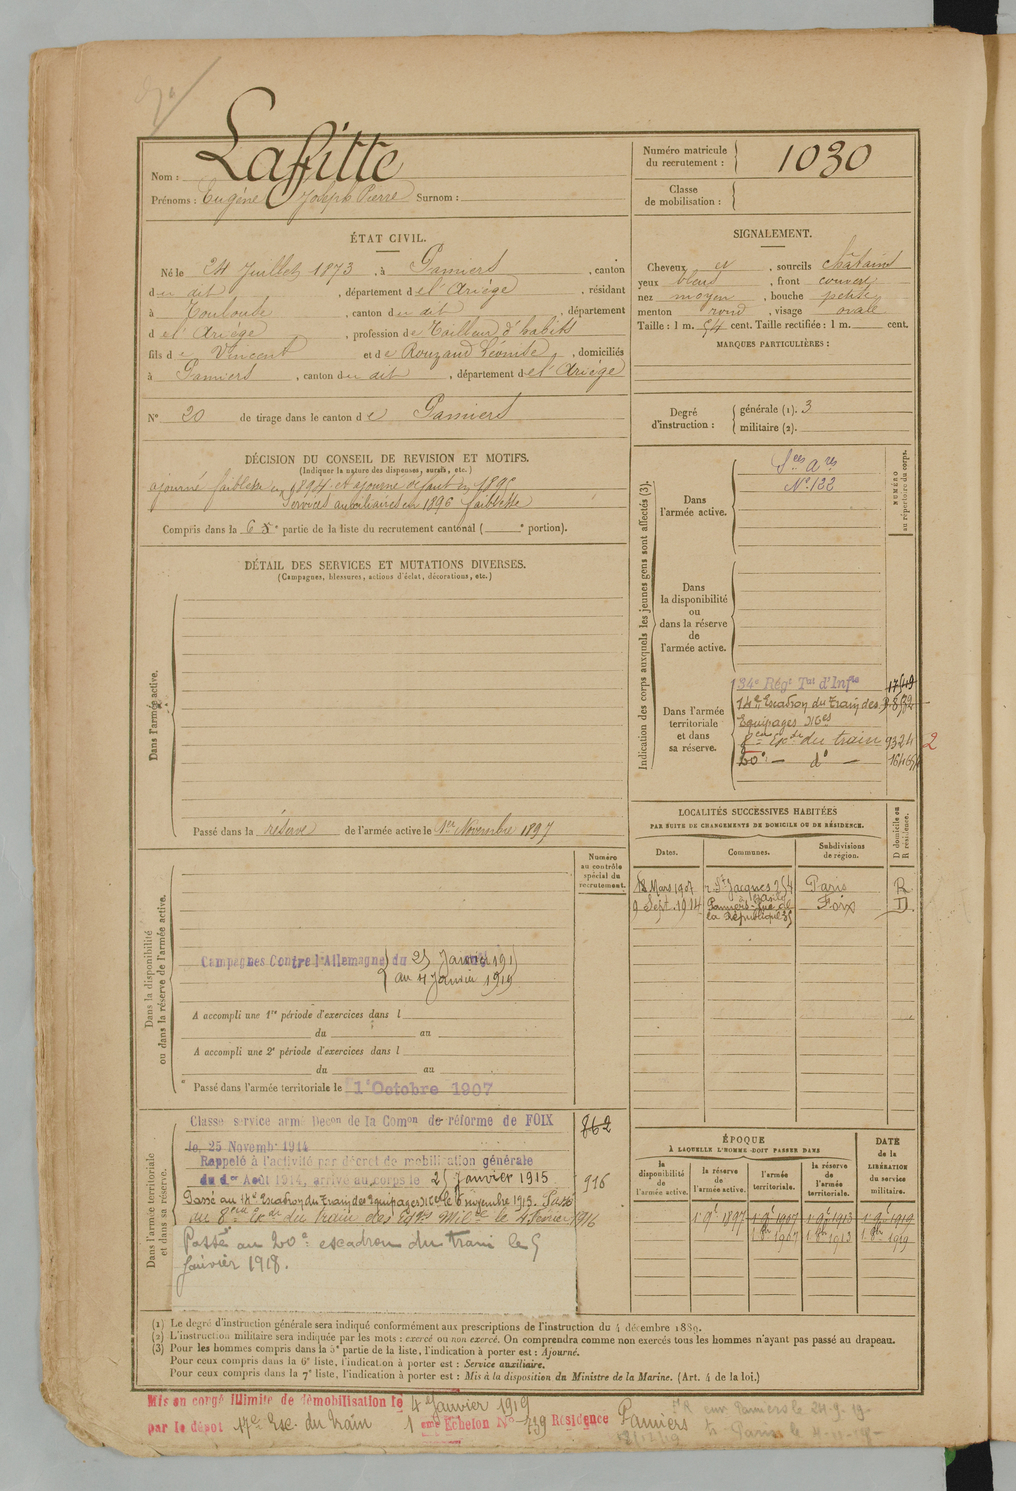 Nom : Laffitte
Prénoms : Eugène Joseph Pierre Surnom :
Numéro matricule du recrutement : 1030
Classe de mobilisation :
ÉTAT CIVIL.
Né le 24 Juillet 1873, à Pamiers, canton
du dit, département de l'Ariège, résidant
à Toulouse, canton du dit, département
de l'Ariège, profession de Tailleur d'habits
fils de Vincent et de Rouzaud Léontine, domiciliés
à Pamiers, canton du dit, département de l'Ariège
N° 20 de tirage dans le canton de Pamiers
SIGNALEMENT.
Cheveux et, sourcils châtains
yeux bleus, front couvert
nez moyen, bouche petite
menton rond, visage ovale
Taille : 1 m. 54 cent. Taille rectifiée : 1 m. cent.
MARQUES PARTICULIÈRES :
Degré d'instruction : générale (1). 3
militaire (2).
DÉCISION DU CONSEIL DE REVISION ET MOTIFS.
(Indiquer la nature des dispenses, sursis, etc.)
ajourné faiblesse en 1894 et ajourné défaut en 1895
Services auxiliaires en 1896 faiblesse
Compris dans la 6e partie de la liste du recrutement cantonal ( e portion).
DÉTAIL DES SERVICES ET MUTATIONS DIVERSES.
(Campagnes, blessures, actions d'éclat, décorations, etc.)
Dans l'armée active.
Passé dans la réserve de l'armée active le 1er Novembre 1897
Indication des corps auxquels les jeunes gens sont affectés (3).
NUMÉRO au répertoire du corps.
Dans l'armée active.
Sces Ares
N° 122
Dans la disponibilité ou dans la réserve de l'armée active.
Dans l'armée territoriale et dans sa réserve.
34e Régt Tal d'Infie
14e Escadron du Train des
Equipages Mres
8em Ex de du train 9324 2
20e — do —
LOCALITÉS SUCCESSIVES HABITÉES
PAR SUITE DE CHANGEMENTS DE DOMICILE OU DE RÉSIDENCE.
D domicile ou R résidence.
Dates. Communes. Subdivisions de région.
18 Mars 1907 r. St Jacques 254 Paris Paris R
9 Sept. 1914 Pamiers rue de la République Foix D
Dans la disponibilité ou dans la réserve de l'armée active.
Numéro au contrôle spécial du recrutement.
Campagnes Contre l'Allemagne du 25 Janvier 1915
au 4 Janvier 1919
A accompli une 1re période d'exercices dans l
du au
A accompli une 2e période d'exercices dans l
du au
Passé dans l'armée territoriale le 1er Octobre 1907
Dans l'armée territoriale et dans sa réserve.
Classé service armé Décon de la Comon de réforme de FOIX 862
le 25 Novembre 1914
Rappelé à l'activité par décret de mobilisation générale
du 1er Août 1914, arrivé au corps le 25 Janvier 1915 916
Passé au 14e Escadron du Train des Equipages Mres le 6 novembre 1915. Passé
au 8em Ex de du train des Eqges Milres le 4 Février 1916
Passé au 20e escadron du train le 5
Janvier 1918.
ÉPOQUE
À LAQUELLE L'HOMME DOIT PASSER DANS
DATE de la LIBÉRATION du service militaire.
la disponibilité de l'armée active. la réserve de l'armée active. l'armée territoriale. la réserve de l'armée territoriale.
1 9bre 1897 1 9bre 1907 1 9bre 1913 1 9bre 1919
1 8bre 1907 1 8bre 1913 1 8bre 1919
(1) Le degré d'instruction générale sera indiqué conformément aux prescriptions de l'instruction du 4 décembre 1889.
(2) L'instruction militaire sera indiquée par les mots : exercé ou non exercé. On comprendra comme non exercés tous les hommes n'ayant pas passé au drapeau.
(3) Pour les hommes compris dans la 5e partie de la liste, l'indication à porter est : Ajourné.
Pour ceux compris dans la 6e liste, l'indication à porter est : Service auxiliaire.
Pour ceux compris dans la 7e liste, l'indication à porter est : Mis à la disposition du Ministre de la Marine. (Art. 4 de la loi.)
Mis en congé illimité de démobilisation le 4 Janvier 1919
par le dépôt 17e Esc. du Train 1em Echelon N° 739 Résidence Pamiers